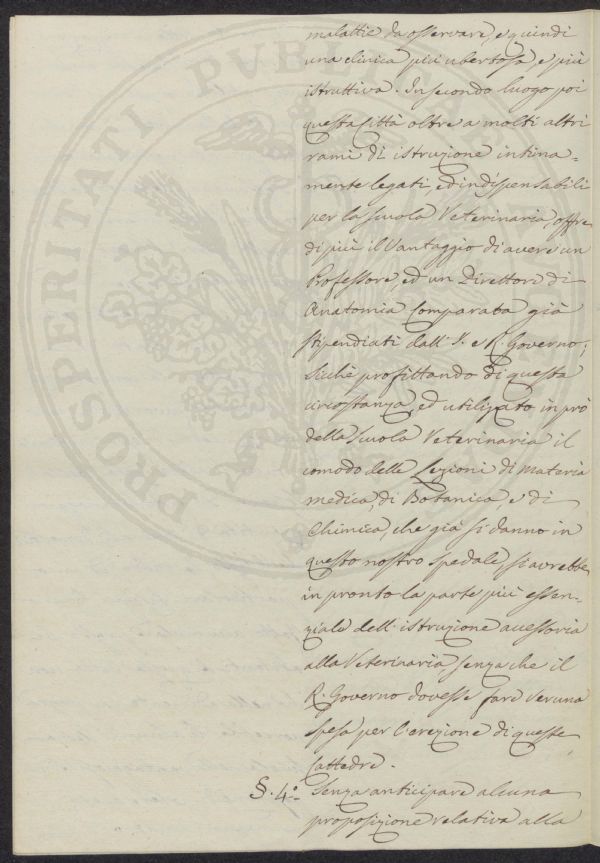 malattie da osservare, e quindi
una clinica più ubertosa, e più
istruttiva. In secondo luogo poi
questa Città oltre a molti altri
rami di istruzione intima=
mente legati, ed indispensabili
per la scuola Veterinaria, offre
di più il Vantaggio di avere un
Professore, ed un Direttore di
Anatomia Comparata già
stipendiati dall' I. e R. Governo;
Sicchè profittando di questa
circostanza, ed utilizzato in prò
della scuola Veterinaria il
comodo delle Lezioni di Materia
medica, di Botanica, e di
Chimica, che già si danno in
questo nostro spedale, si avrebbe
in pronto la parte più essen=
ziale dell' istruzione accessoria
alla Veterinaria senza che il
R. Governo dovesse fare Veruna
spesa per l'erezione di queste
Cattedre.
§. 4°. Senza anticipare alcuna
proposizione relativa alla
PROSPERITATI PVBLICAE